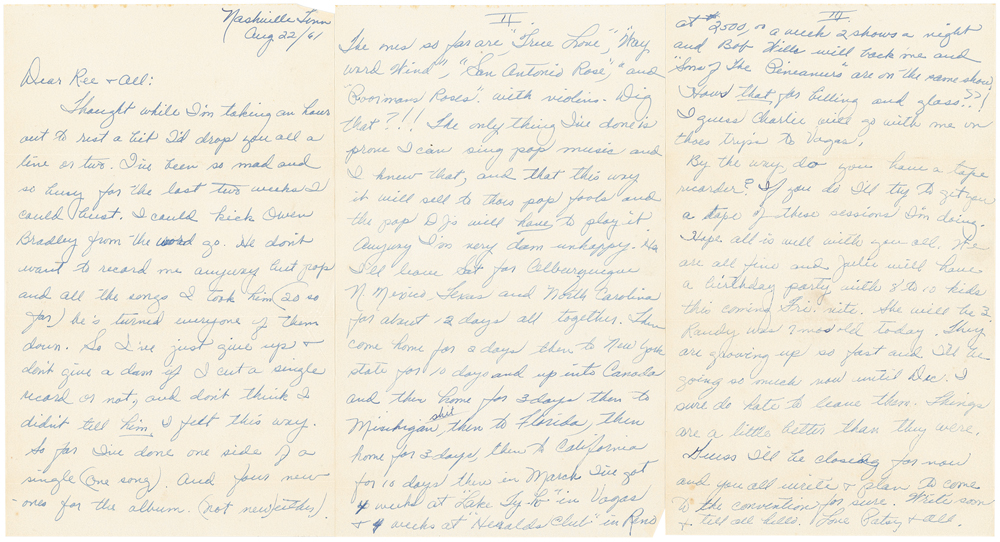 Nashville Tenn
Aug 22/61
Dear Ree & All:
Thought while I'm taking an hour
out to rest a bit I'd drop you all a
line or two. I've been so mad and
so busy for the last two weeks I
could bust. I could kick Owen
Bradley from the word go. He don't
want to record me anyway but pop
and all the songs I took him (20 so
far) he's turned everyone of them
down. So I've just give up &
don't give a dam if I cut a single
record or not, and don't think I
didn't tell him I felt this way.
So far I've done one side of a
single (one song). And four new
ones for the album. (not new) either).
II
The ones so far are, "True Love", "Way
ward Wind", "San Antonio Rose", and
"Poormans Roses". with violins. Dig
that?!!! The only thing I've done is
prove I can sing pop music and
I knew that, and that this way
it will sell to thoes pop fools and
the pop D Js will have to play it.
Anyway I'm very dam unhappy. Ha
I'll leave Sat for Alburquegue
N Mexico, Texas and North Carolina
for about 12 days all together. Then
come home for 2 days then to New York
state for 10 days and up into Canada
and then home for 3 days then to
Misihegan, then to Florida, then
home for 3 days, then to California
for 10 days then in March I've got
4 weeks at "Lake Ty-Ho" in Vagas
& 4 weeks at "Heralds Club" in Reno
III
at $2500, a week 2 shows a night
and Bob Wills will back me and
"Sons of The Pineaneers" are on the same show.
How's that for billing and glass??!
I guess Charlie will go with me on
thoes trips to Vagas.
By the way, do you have a tape
recorder? If you do I'll try to get you
a tape of these sessions I'm doing.
Hope all is well with you all. We
are all fine and Julie will have
a birthday party with 8 to 10 kids
this coming Fri. nite. She will be 3.
Randy was 7 mos old today. They
are growing up so fast and I'll be
going so much now until Dec. I
sure do hate to leave them. Things
are a little better than they were.
Guess I'll be closing for now
and you all write & plan to come
to the convention for sure. Write soon
& tell all hello. Love Patsy & All.